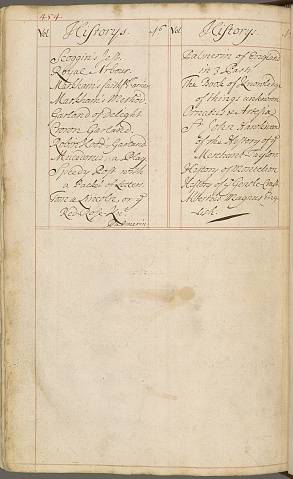 454
Vol Historys. 16
Scoggin's Jests.
Royal Arbour.
Markham's faithf: Farrier
Markham's Method.
Garland of Delight.
Crown Garland.
Robin Hood's Garland
Mucedorus, a Play.
Speedy Post with
a Packet of Letters.
Tom a Lincoln, or ye
Red-Rose-Knt.
Palmerin
Vol Historys.
Palmerin of England
in 3 Parts
The Book of Knowledge
of things unknown
Ornatus & Artesia
Sr. John Hawkwood
of the History of ye
Merchant Taylors
History of
History of ye Gentle-Craft
Albertus Magnus Eng-
lish.